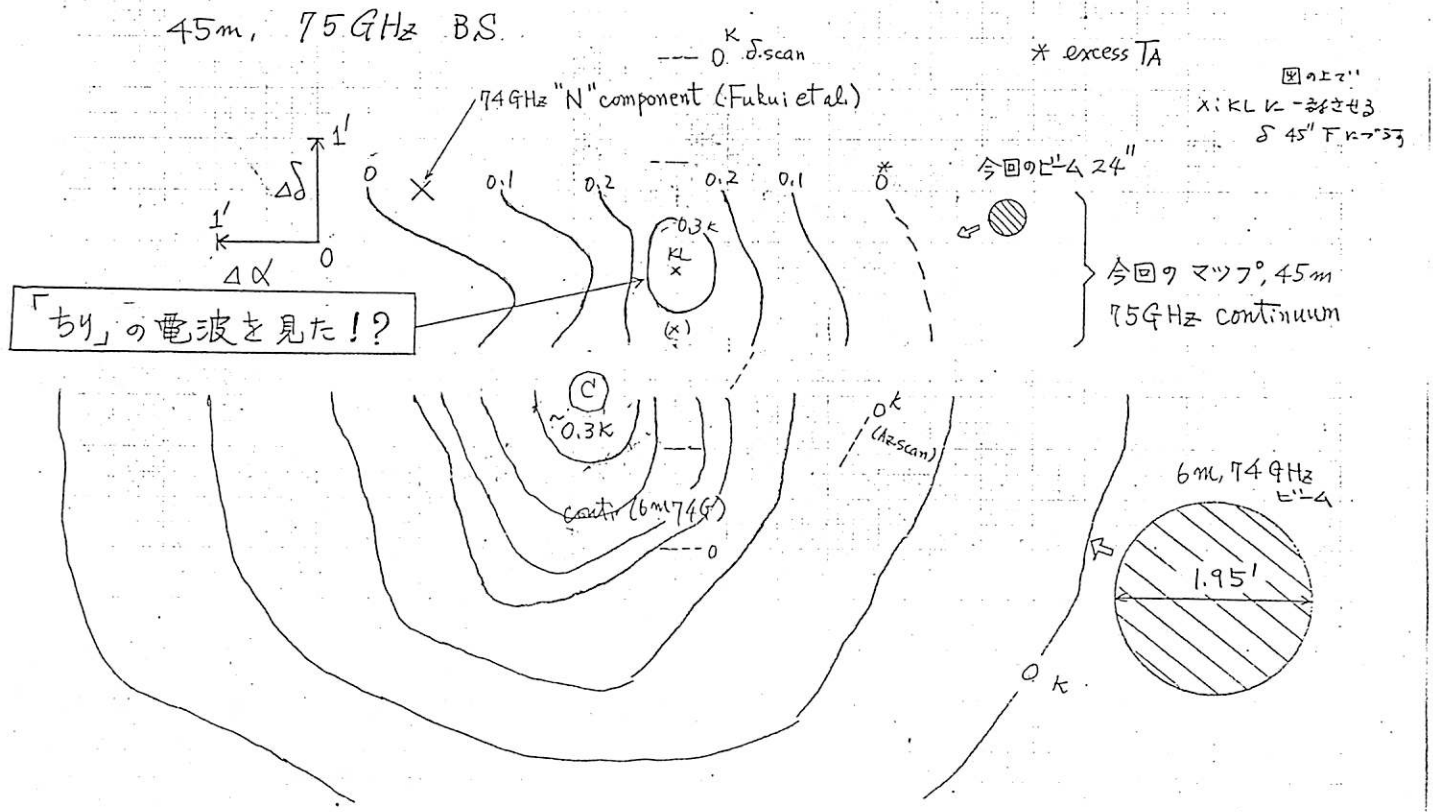 45m, 75GHz B.S.
--- 0 K δ.scan
* excess TA
図の上で
X:KLに一致させる
δ 45" 下につづる
74GHz "N" component (Fukui et al.)
1'
Δδ
1'
0
Δα
0
0.1
0.2
0.3K
KL
×
(×)
0.2
0.1
0*
今回のビーム 24"
今回のマップ, 45m
75GHz continuum
「ちり」の電波を見た!?
C
~0.3K
conti (6m74G)
0
0K
(Az.scan)
6m, 74GHz
ビーム
1.95'
0 K